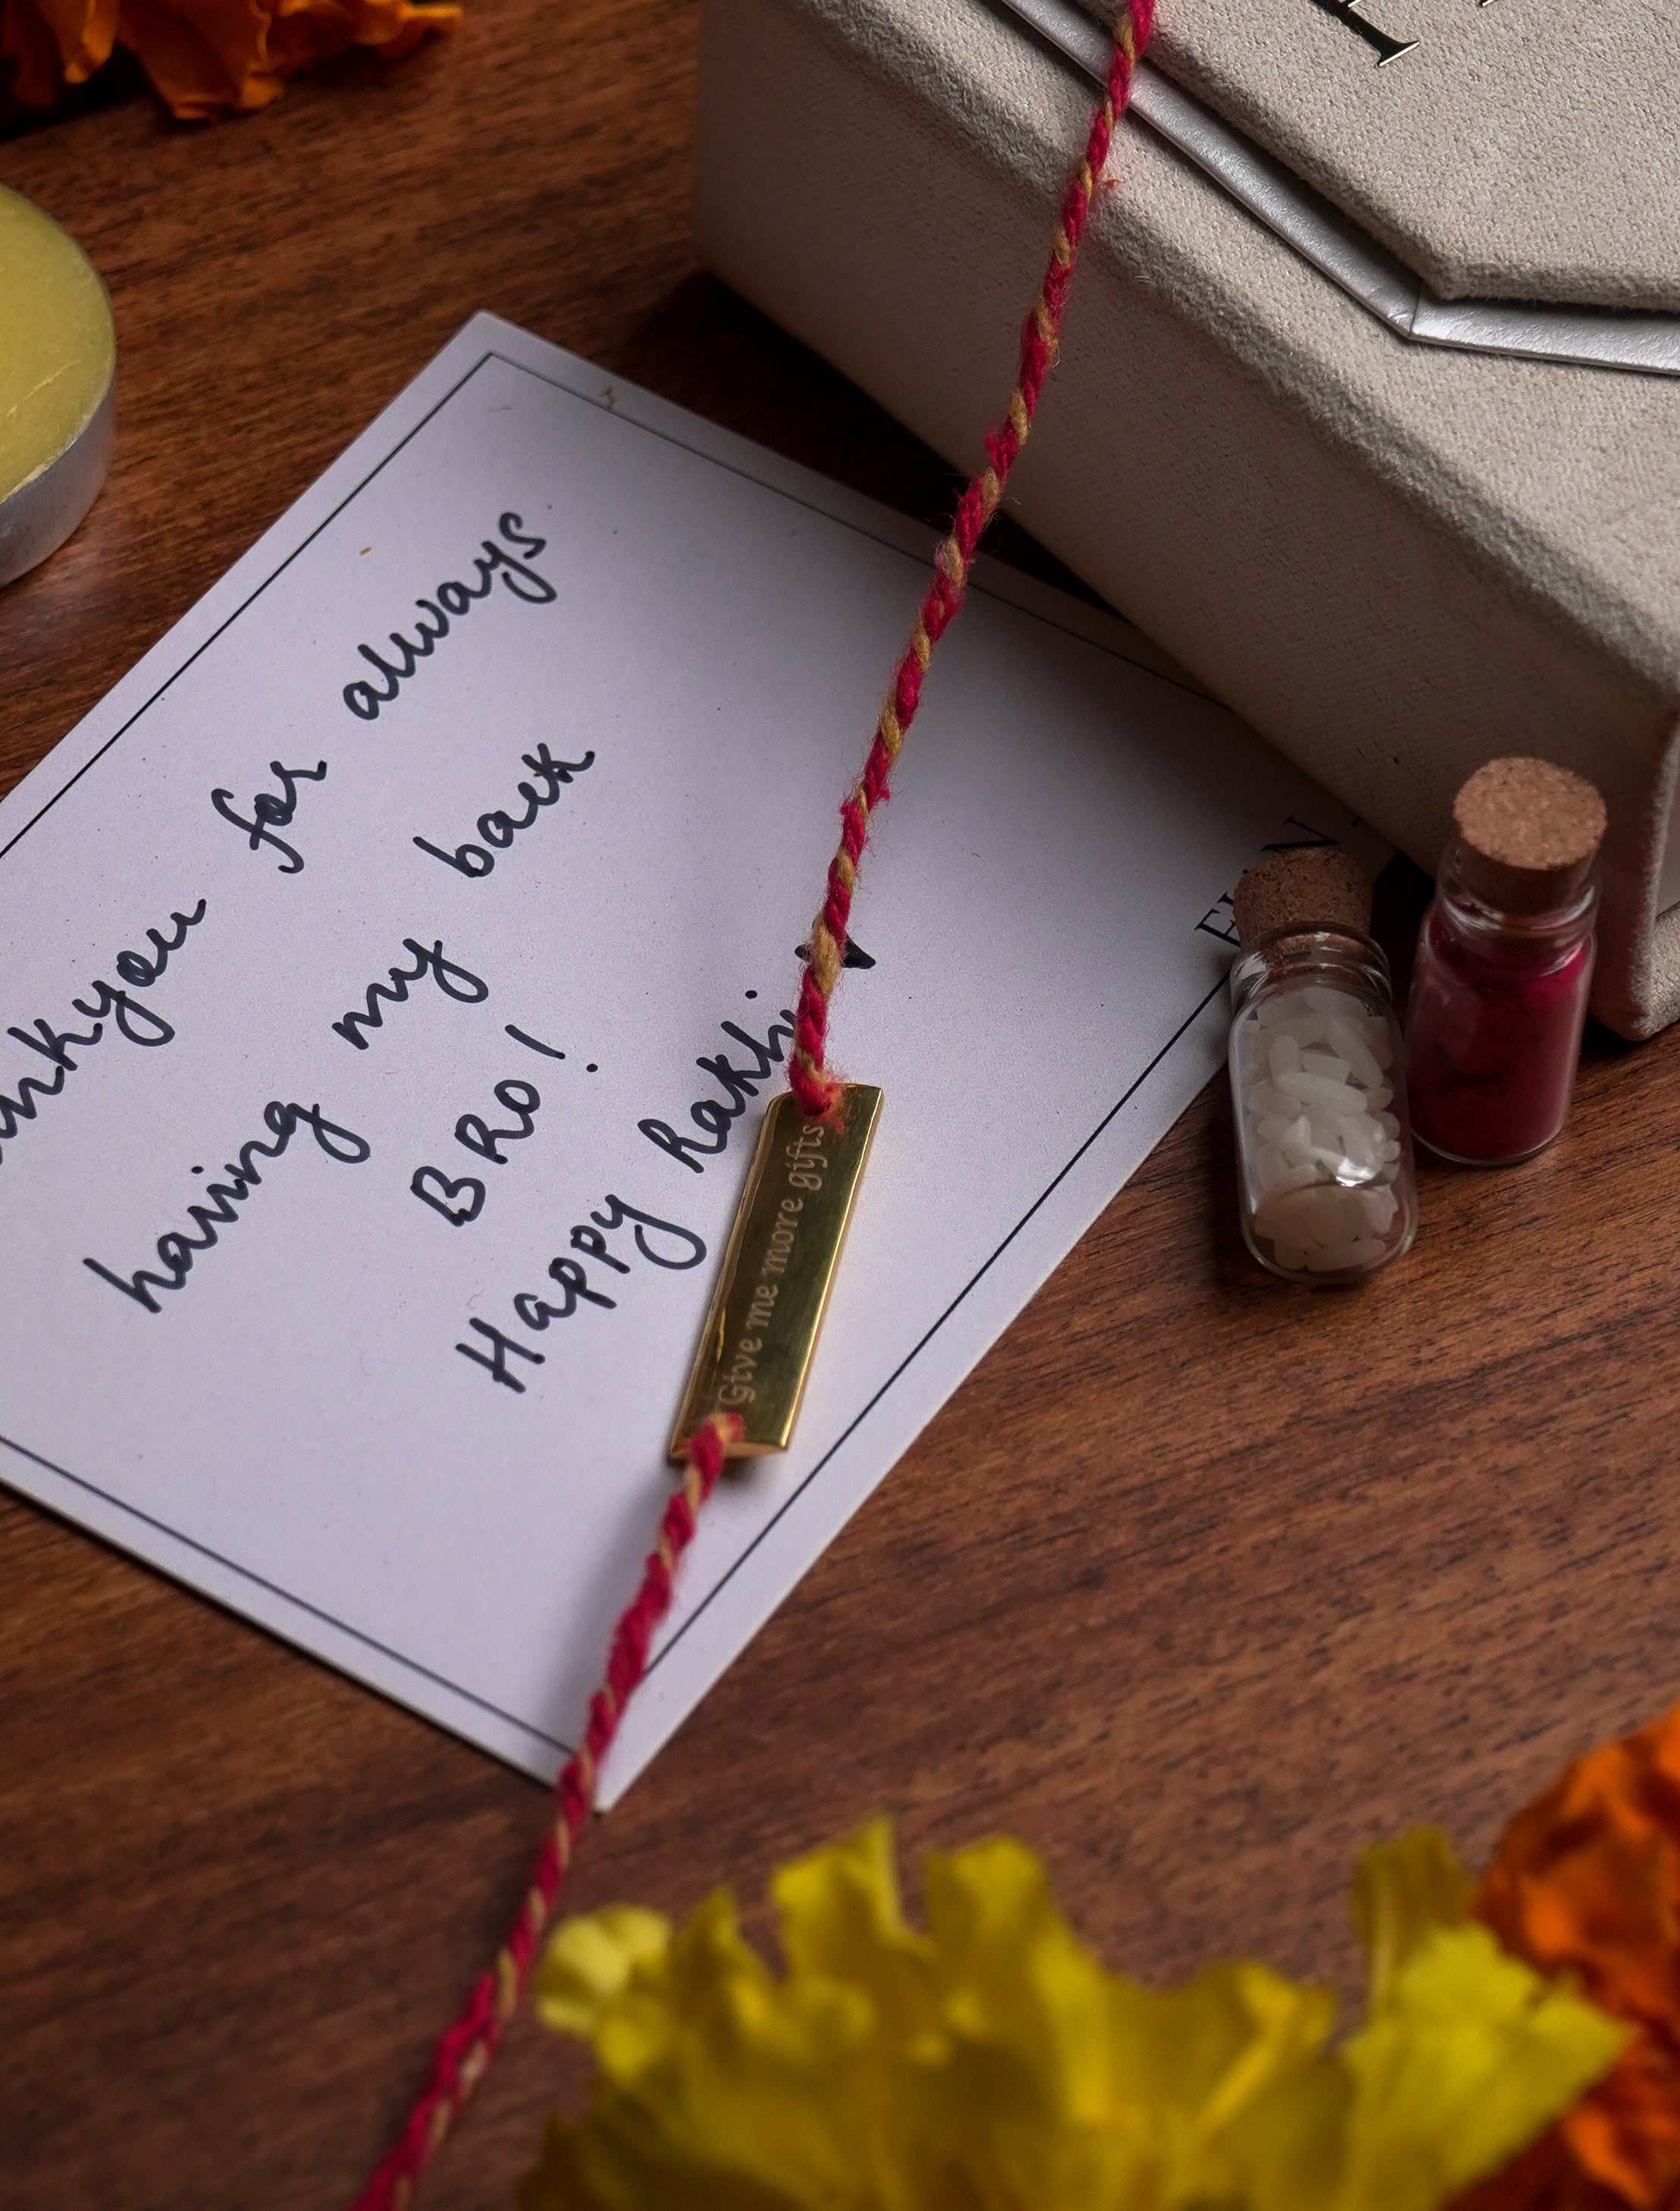 ankyou for always
having my back
BRO!
Happy Rakhi
Give me more gifts